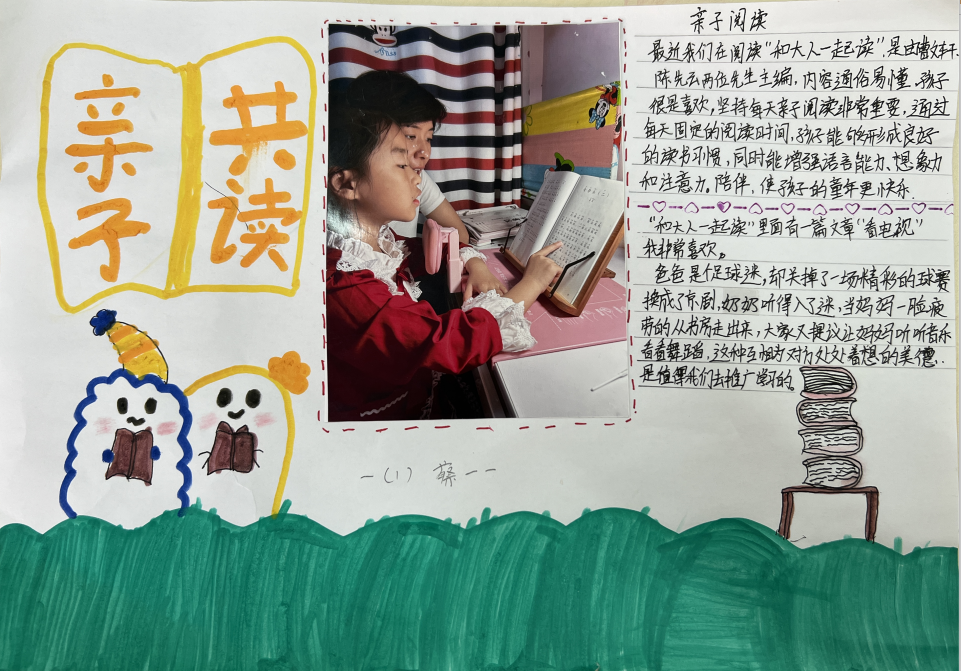 亲子
共读
亲子阅读
最近我们在阅读“和大人一起读”,是由曹文轩.
陈先云两位先生主编,内容通俗易懂,孩子
很是喜欢,坚持每天亲子阅读非常重要,通过
每天固定的阅读时间,孩子能够形成良好
的读书习惯,同时能增强语言能力、想象力
和注意力。陪伴,使孩子的童年更快乐.
“和大人一起读”里面有一篇文章“看电视”
我非常喜欢。
爸爸是个足球迷,却关掉了一场精彩的球赛
换成了京剧,奶奶听得入了迷,当妈妈一脸疲
劳的从书房走出来,大家又提议让妈妈听听音乐
看看舞蹈,这种互相为对方处处着想的美德,
是值得我们去推广学习的。
一(1) 蔡一一